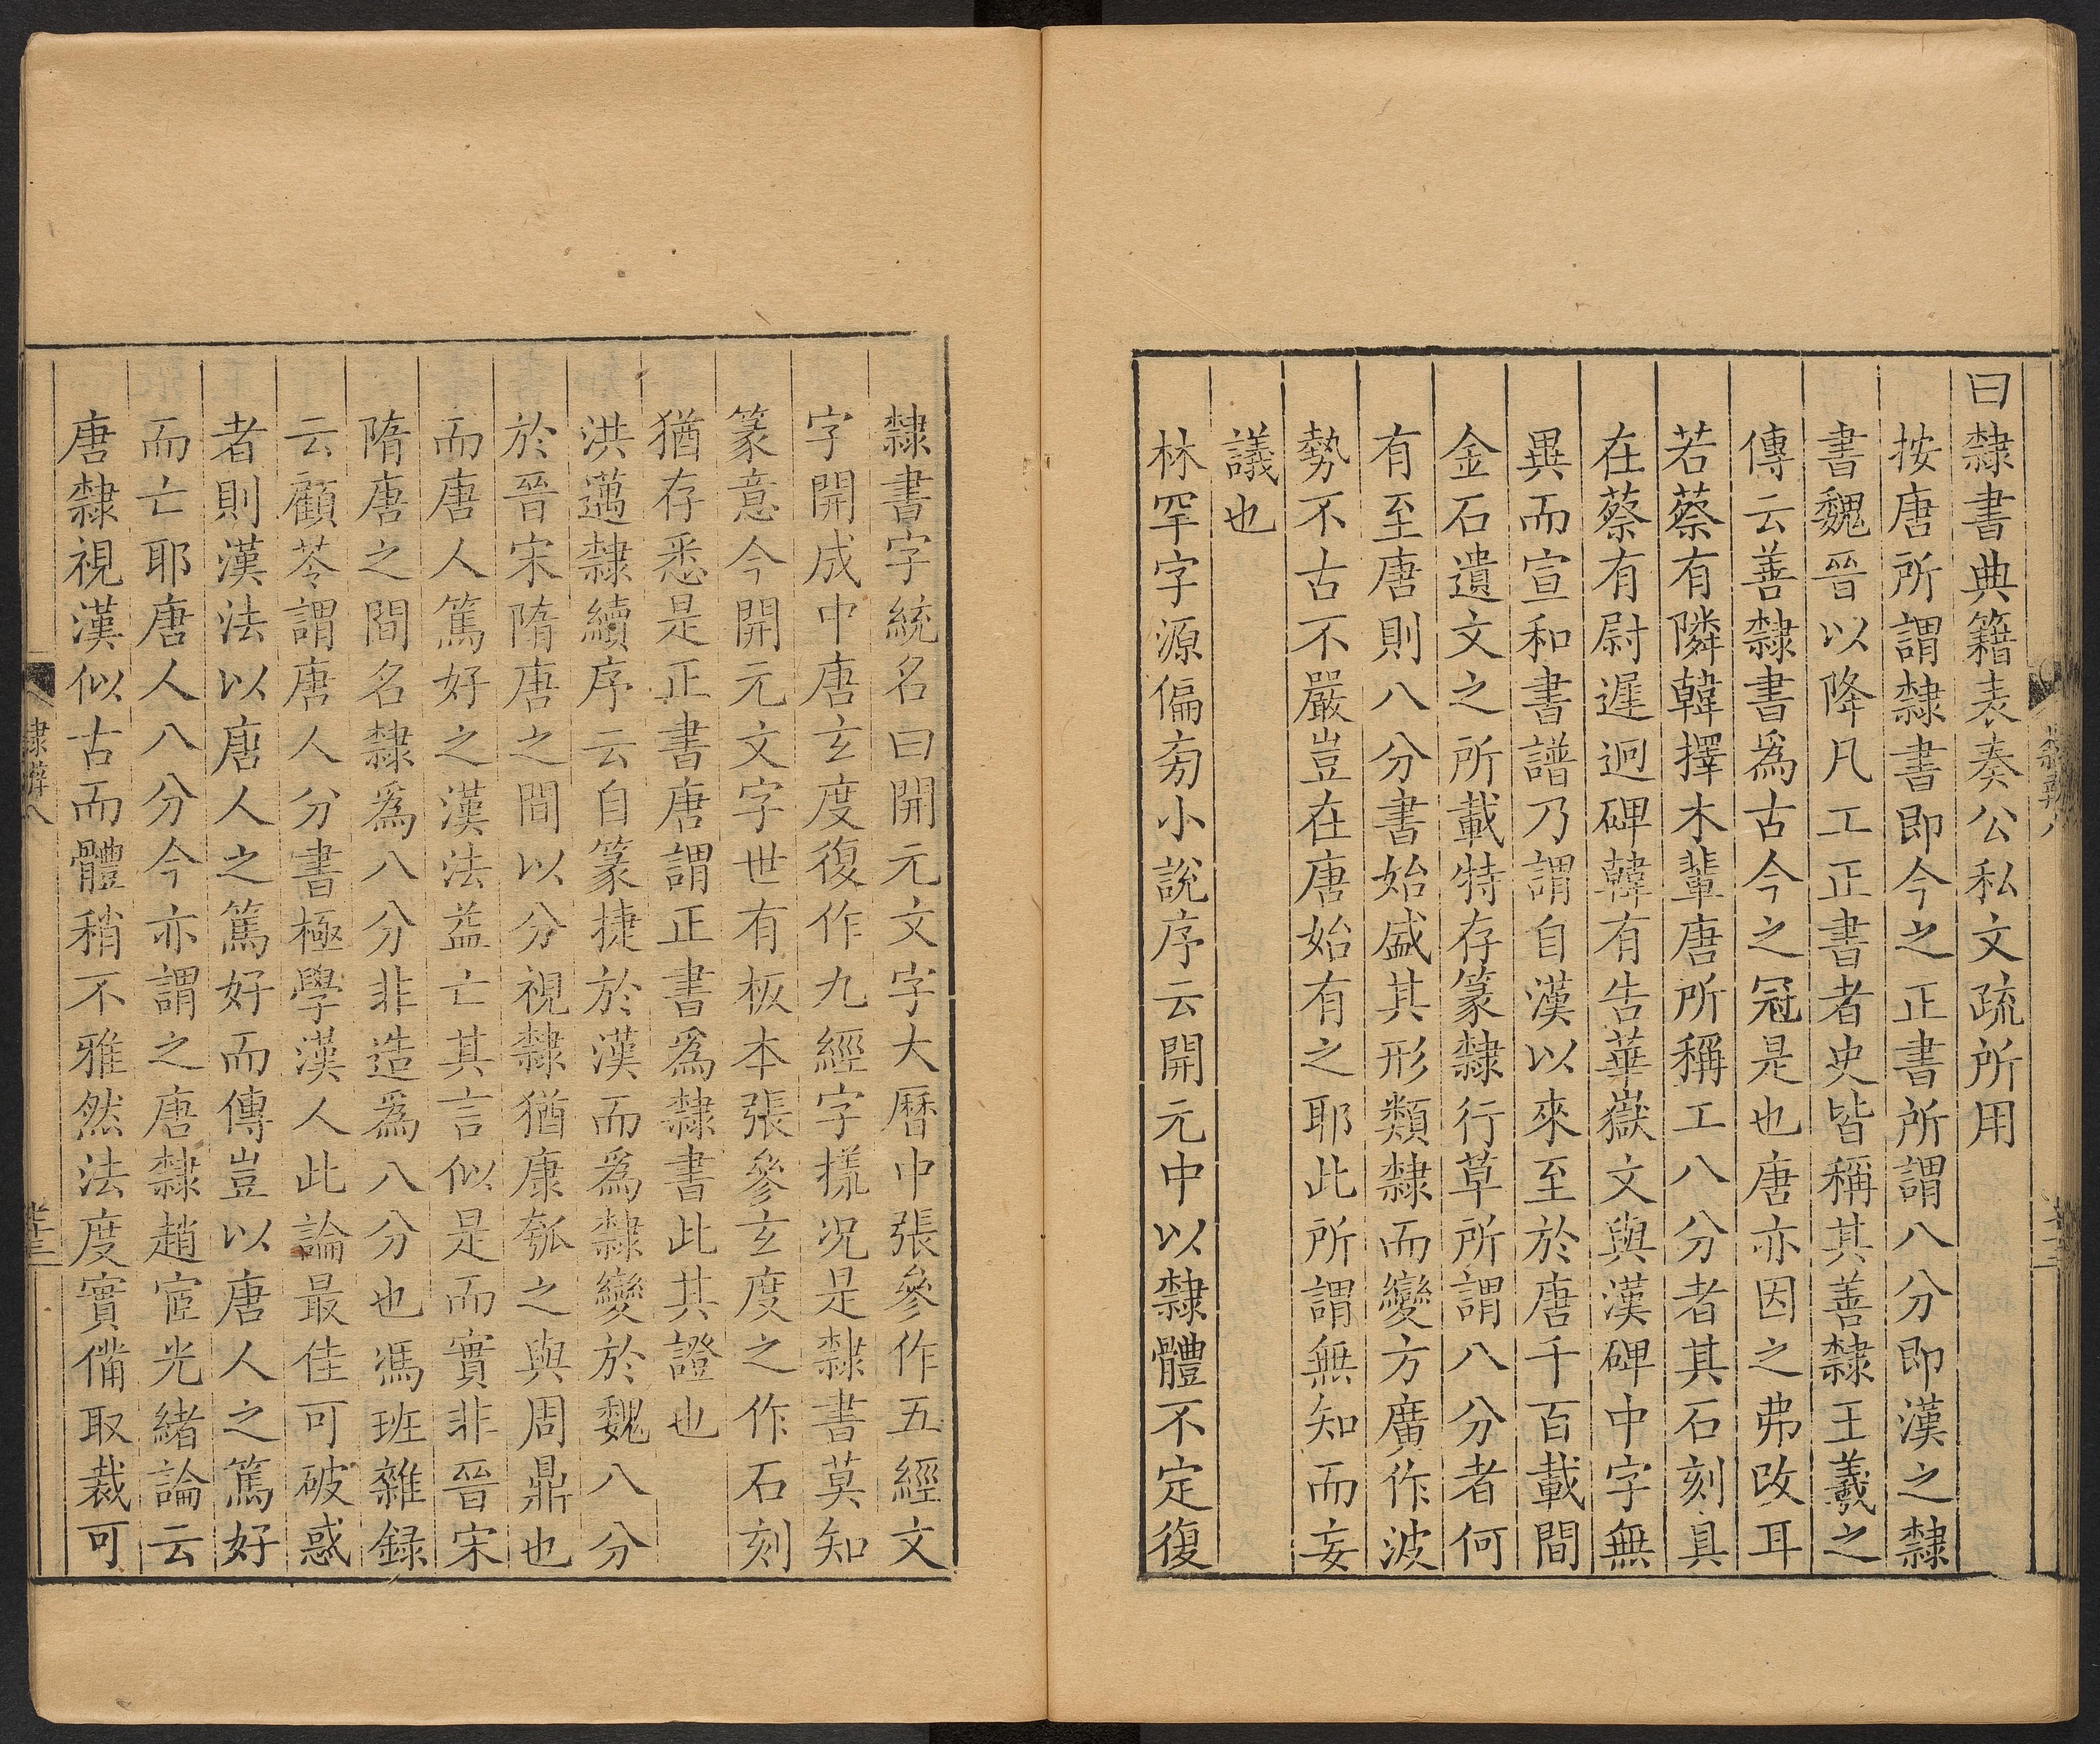 曰隸書典籍表奏公私文疏所用
按唐所謂隸書即今之正書所謂八分即漢之隸
書魏晉以降凡工正書者史皆稱其善隸王羲之
傳云善隸書爲古今之冠是也唐亦因之弗改耳
若蔡有隣韓擇木輩唐所稱工八分者其石刻具
在蔡有尉遲迥碑韓有告華嶽文與漢碑中字無
異而宣和書譜乃謂自漢以來至於唐千百載間
金石遺文之所載特存篆隸行草所謂八分者何
有至唐則八分書始盛其形類隸而變方廣作波
勢不古不嚴豈在唐始有之耶此所謂無知而妄
議也
林罕字源偏旁小說序云開元中以隸體不定復
隸書字統名曰開元文字大曆中張參作五經文
字開成中唐玄度復作九經字㨾况是隸書莫知
篆意今開元文字世有板本張參玄度之作石刻
猶存悉是正書唐謂正書爲隸書此其證也
洪邁隸續序云自篆捷於漢而爲隸變於魏八分
於晉宋隋唐之間以分視隸猶康瓠之與周鼎也
而唐人篤好之漢法益亡其言似是而實非晉宋
隋唐之間名隸爲八分非造爲八分也馮班雜録
云顧苓謂唐人分書極學漢人此論最佳可破惑
者則漢法以唐人之篤好而傳豈以唐人之篤好
而亡耶唐人八分今亦謂之唐隸趙宧光緒論云
唐隸視漢似古而體稍不雅然法度實備取裁可
隸辨八